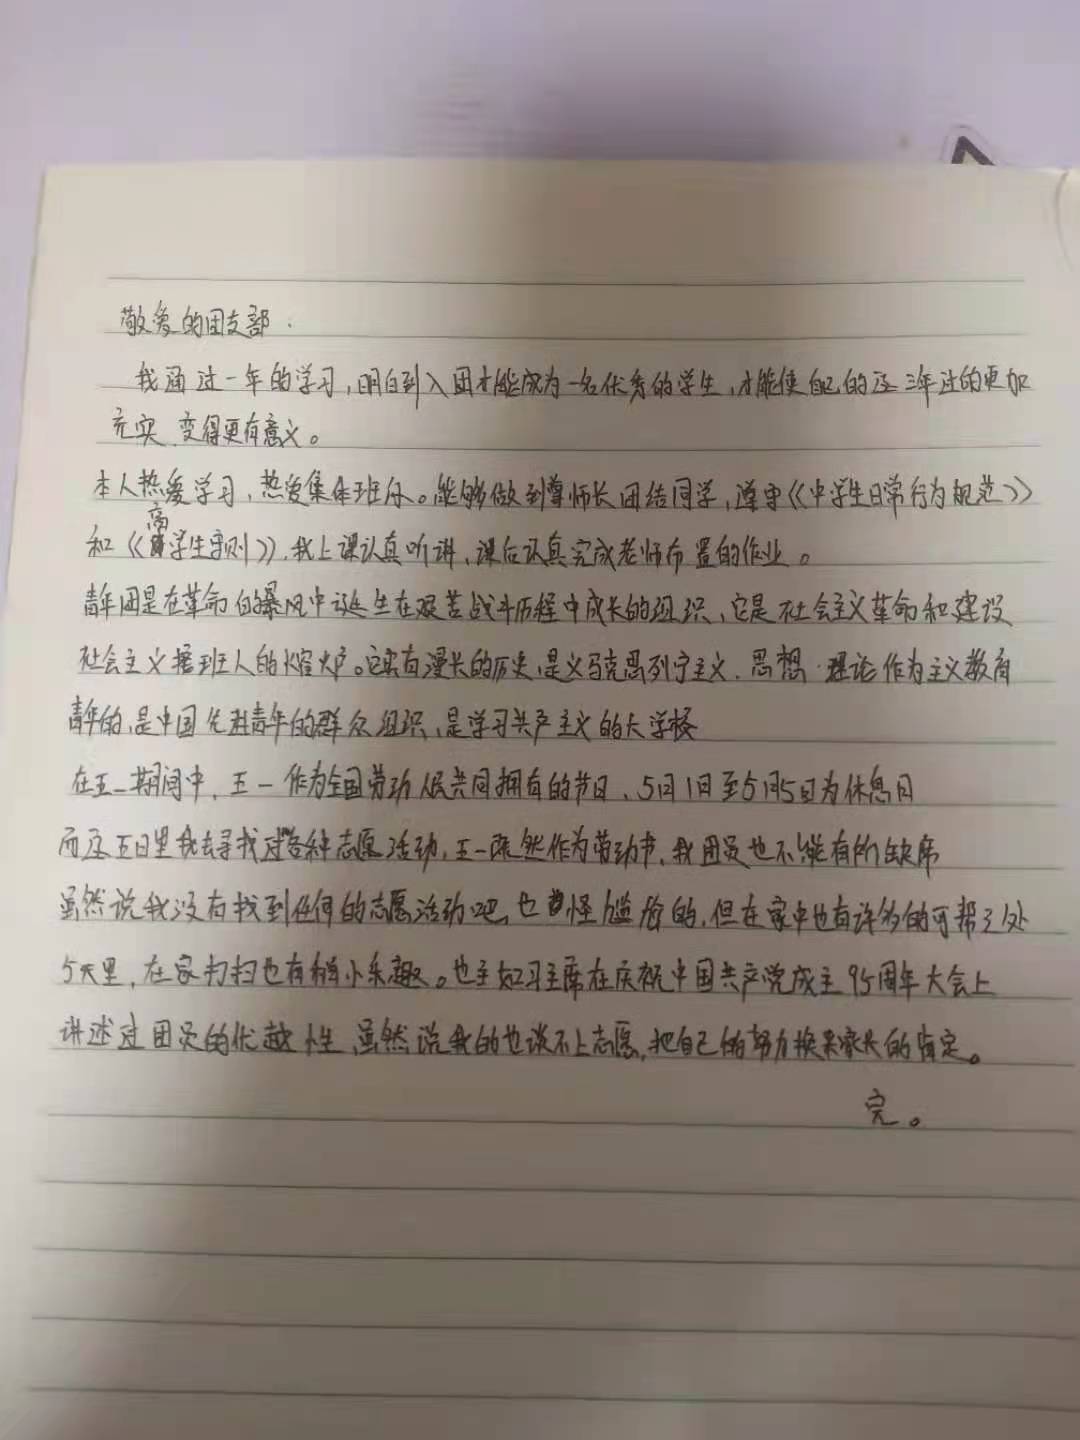 敬爱的团支部:
我通过一年的学习,明白到入团才能成为一名优秀的学生,才能使自己的这三年过的更加
充实 变得更有意义。
本人热爱学习,热爱集体班风。能够做到尊师长团结同学,遵守《中学生日常行为规范》
和《高学生守则》,我上课认真听讲,课后认真完成老师布置的作业。
青年团是在革命的暴风中诞生在艰苦战斗历程中成长的组织,它是社会主义革命和建设
社会主义接班人的熔炉。它有漫长的历史,是义马克思列宁主义.思想.理论作为主义教育
青年的,是中国先进青年的群众组织,是学习共产主义的大学校
在五一期间中,五一作为全国劳动人民共同拥有的节日、5月1日至5月5日为休息日
而这五日里我去寻找过各种志愿活动,五一既然作为劳动节,我团员也不能有所缺席
虽然说我没有找到任何的志愿活动吧,也怪尴尬的,但在家中也有许多的可帮之处
5天里,在家打扫也有稍小乐趣。也主如习主席在庆祝中国共产党成立95周年大会上
讲述过团员的优越性,虽然说我的也谈不上志愿,把自己的努力换来家长的肯定。
完。